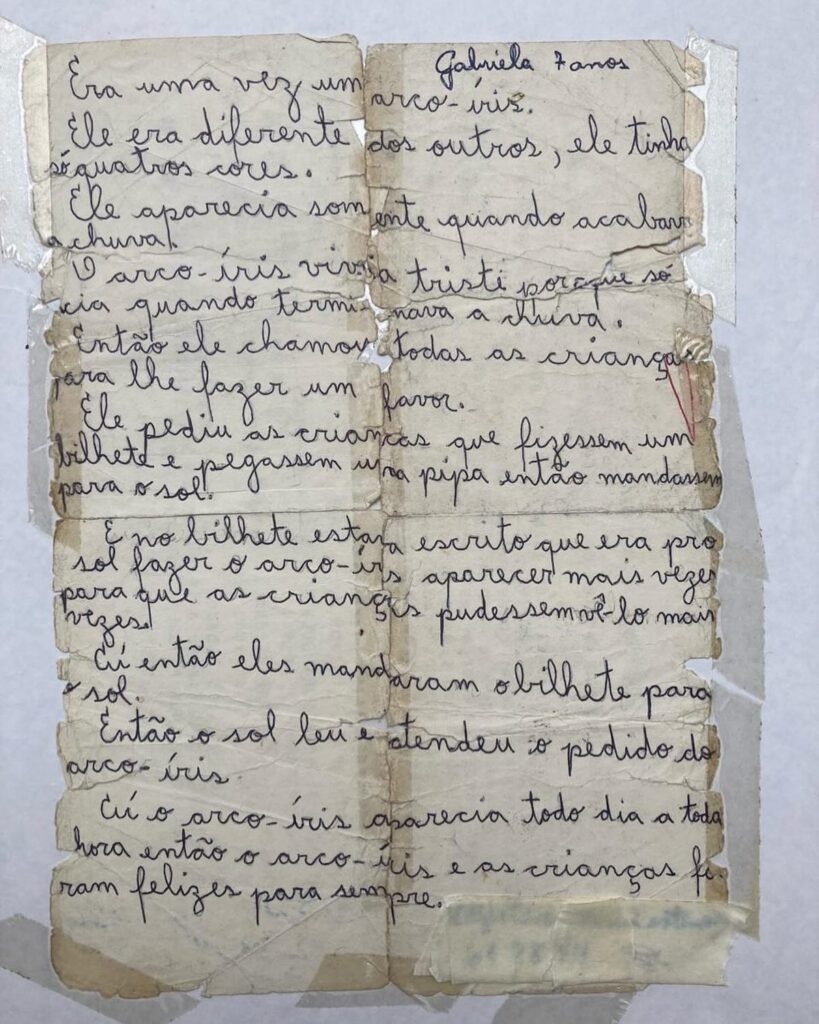 Gabriela 7 anos
Era uma vez um arco-íris.
Ele era diferente dos outros, ele tinha
só quatros cores.
Ele aparecia somente quando acabava
a chuva.
O arco-íris vivia triste porque só
cia quando terminava a chuva.
Então ele chamou todas as crianças
para lhe fazer um favor.
Ele pediu as crianças que fizessem um
bilhete e pegassem uma pipa então mandassem
para o sol.
E no bilhete estava escrito que era pro
sol fazer o arco-íris aparecer mais vezes
para que as crianças pudessem vê-lo mais
vezes.
Aí então eles mandaram o bilhete para
o sol.
Então o sol leu e atendeu o pedido do
arco-íris.
Aí o arco-íris aparecia todo dia a toda
hora então o arco-íris e as crianças fo-
ram felizes para sempre.